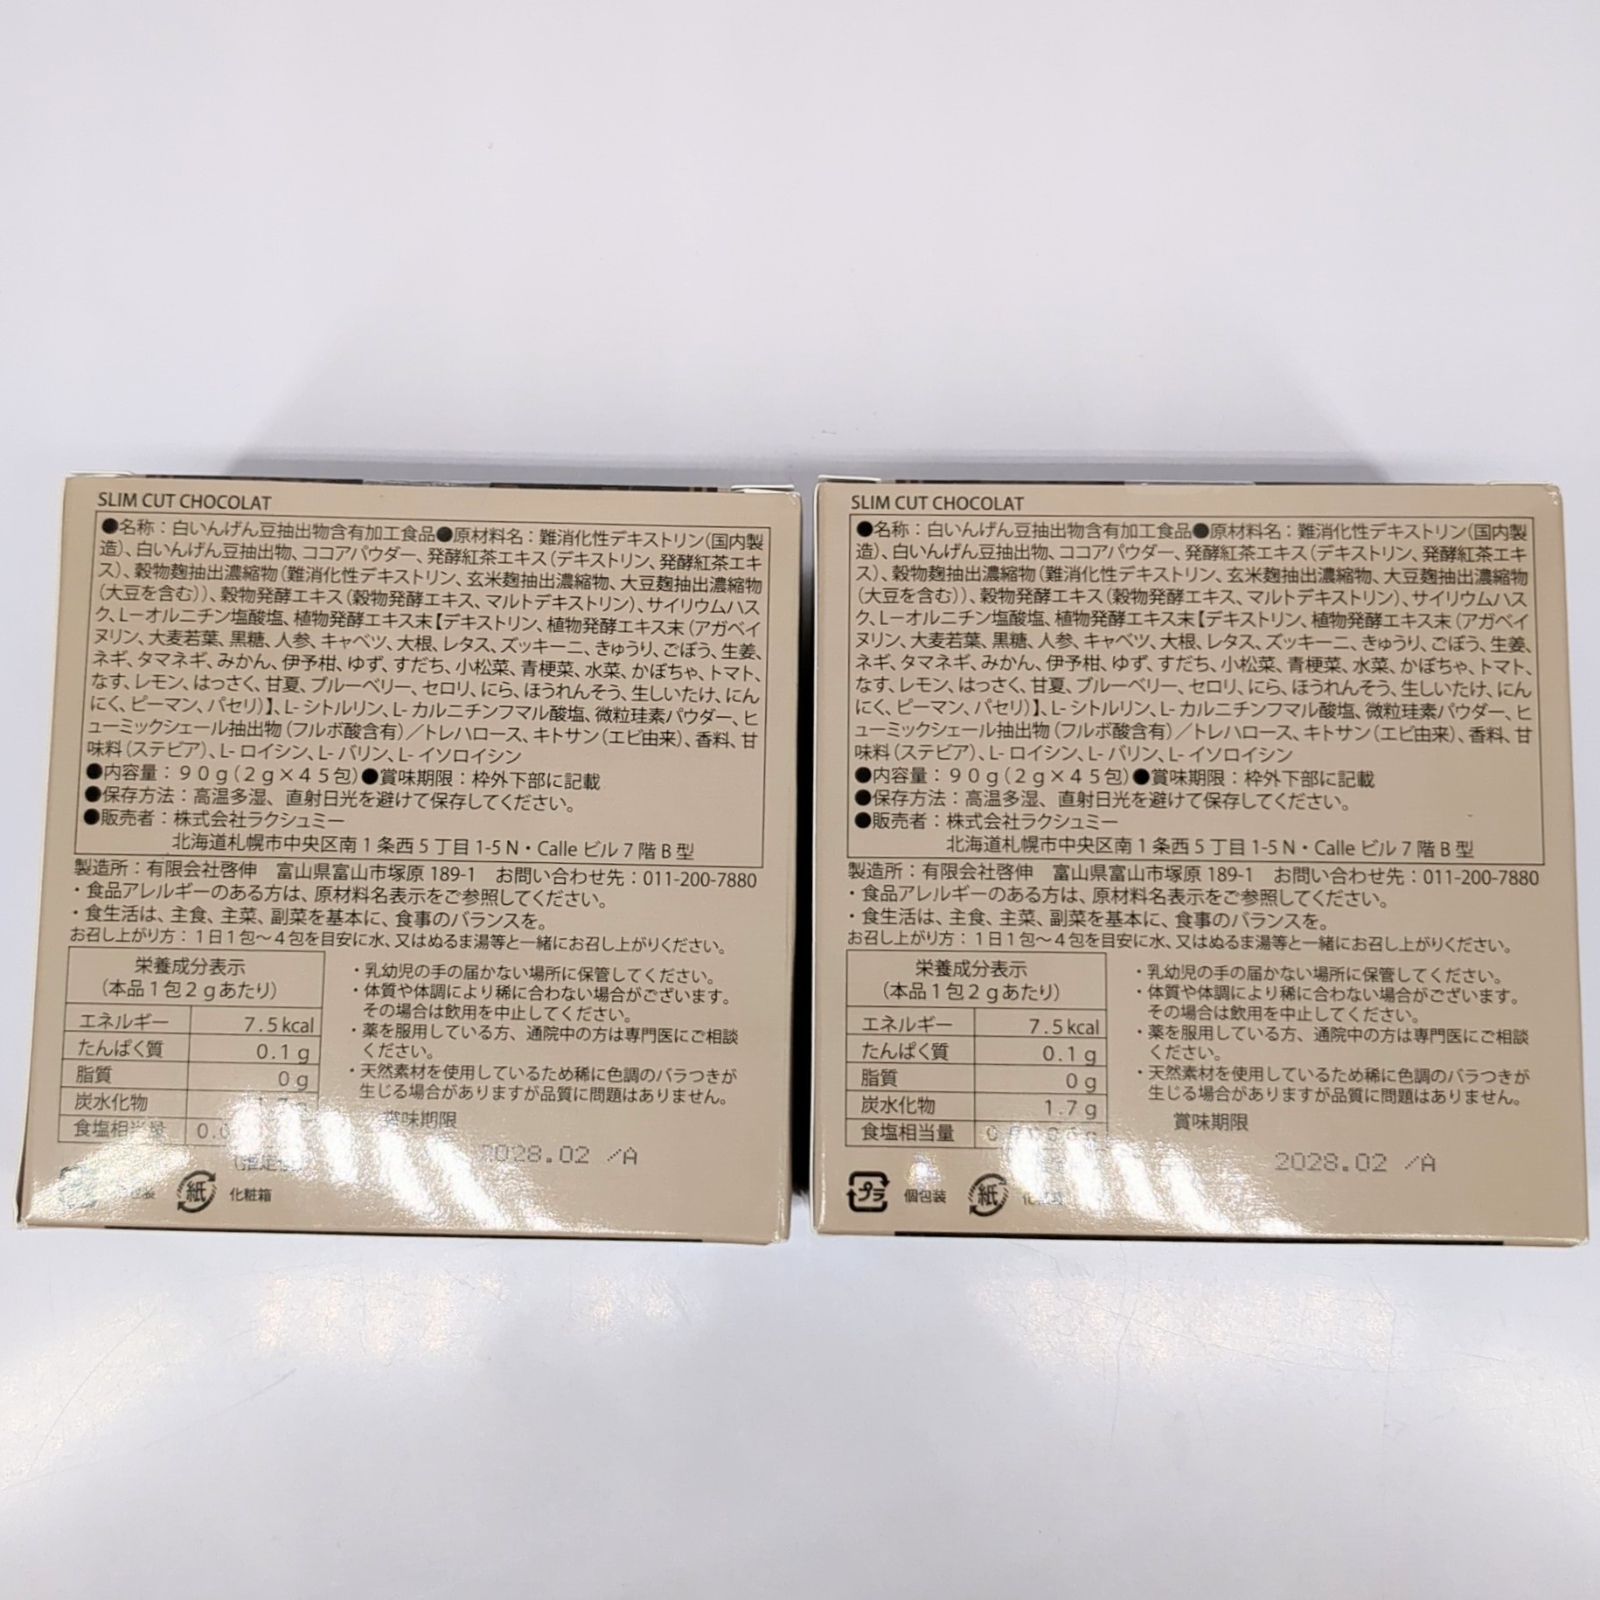 SLIM CUT CHOCOLAT
●名称：白いんげん豆抽出物含有加工食品●原材料名：難消化性デキストリン（国内製
造）、白いんげん豆抽出物、ココアパウダー、発酵紅茶エキス（デキストリン、発酵紅茶エキ
ス）、穀物麹抽出濃縮物（難消化性デキストリン、玄米麹抽出濃縮物、大豆麹抽出濃縮物
（大豆を含む））、穀物発酵エキス（穀物発酵エキス、マルトデキストリン）、サイリウムハス
ク、L－オルニチン塩酸塩、植物発酵エキス末【デキストリン、植物発酵エキス末（アガベイ
ヌリン、大麦若葉、黒糖、人参、キャベツ、大根、レタス、ズッキーニ、きゅうり、ごぼう、生姜、
ネギ、タマネギ、みかん、伊予柑、ゆず、すだち、小松菜、青梗菜、水菜、かぼちゃ、トマト、
なす、レモン、はっさく、甘夏、ブルーベリー、セロリ、にら、ほうれんそう、生しいたけ、にん
にく、ピーマン、パセリ）】、L- シトルリン、L- カルニチンフマル酸塩、微粒珪素パウダー、ヒ
ューミックシェール抽出物（フルボ酸含有）／トレハロース、キトサン（エビ由来）、香料、甘
味料（ステビア）、L- ロイシン、L- バリン、L- イソロイシン
●内容量：９０g（２g×４５包）●賞味期限：枠外下部に記載
●保存方法：高温多湿、直射日光を避けて保存してください。
●販売者：株式会社ラクシュミー
北海道札幌市中央区南１条西５丁目 1-5 N・Calle ビル７階 B 型
製造所：有限会社啓伸　富山県富山市塚原 189-1　お問い合わせ先：011-200-7880
・食品アレルギーのある方は、原材料名表示をご参照してください。
・食生活は、主食、主菜、副菜を基本に、食事のバランスを。
お召し上がり方：１日１包～４包を目安に水、又はぬるま湯等と一緒にお召し上がりください。
栄養成分表示
（本品１包２gあたり）
エネルギー 7.5kcal
たんぱく質 0.1g
脂質 0g
炭水化物
食塩相当量
・乳幼児の手の届かない場所に保管してください。
・体質や体調により稀に合わない場合がございます。
その場合は飲用を中止してください。
・薬を服用している方、通院中の方は専門医にご相談
ください。
・天然素材を使用しているため稀に色調のバラつきが
生じる場合がありますが品質に問題はありません。
賞味期限
2028.02 /A
紙 化粧箱
SLIM CUT CHOCOLAT
●名称：白いんげん豆抽出物含有加工食品●原材料名：難消化性デキストリン（国内製
造）、白いんげん豆抽出物、ココアパウダー、発酵紅茶エキス（デキストリン、発酵紅茶エキ
ス）、穀物麹抽出濃縮物（難消化性デキストリン、玄米麹抽出濃縮物、大豆麹抽出濃縮物
（大豆を含む））、穀物発酵エキス（穀物発酵エキス、マルトデキストリン）、サイリウムハス
ク、L－オルニチン塩酸塩、植物発酵エキス末【デキストリン、植物発酵エキス末（アガベイ
ヌリン、大麦若葉、黒糖、人参、キャベツ、大根、レタス、ズッキーニ、きゅうり、ごぼう、生姜、
ネギ、タマネギ、みかん、伊予柑、ゆず、すだち、小松菜、青梗菜、水菜、かぼちゃ、トマト、
なす、レモン、はっさく、甘夏、ブルーベリー、セロリ、にら、ほうれんそう、生しいたけ、にん
にく、ピーマン、パセリ）】、L- シトルリン、L- カルニチンフマル酸塩、微粒珪素パウダー、ヒ
ューミックシェール抽出物（フルボ酸含有）／トレハロース、キトサン（エビ由来）、香料、甘
味料（ステビア）、L- ロイシン、L- バリン、L- イソロイシン
●内容量：９０g（２g×４５包）●賞味期限：枠外下部に記載
●保存方法：高温多湿、直射日光を避けて保存してください。
●販売者：株式会社ラクシュミー
北海道札幌市中央区南１条西５丁目 1-5 N・Calle ビル７階 B 型
製造所：有限会社啓伸　富山県富山市塚原 189-1　お問い合わせ先：011-200-7880
・食品アレルギーのある方は、原材料名表示をご参照してください。
・食生活は、主食、主菜、副菜を基本に、食事のバランスを。
お召し上がり方：１日１包～４包を目安に水、又はぬるま湯等と一緒にお召し上がりください。
栄養成分表示
（本品１包２gあたり）
エネルギー 7.5kcal
たんぱく質 0.1g
脂質 0g
炭水化物 1.7g
食塩相当量
・乳幼児の手の届かない場所に保管してください。
・体質や体調により稀に合わない場合がございます。
その場合は飲用を中止してください。
・薬を服用している方、通院中の方は専門医にご相談
ください。
・天然素材を使用しているため稀に色調のバラつきが
生じる場合がありますが品質に問題はありません。
賞味期限
2028.02 /A
プラ 個包装 紙